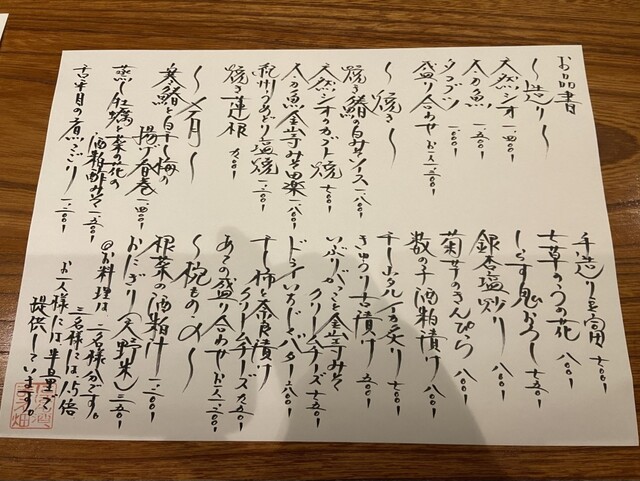 お品書
〜造り〜
天然シオ 一、四〇〇
入カ魚 一、五〇〇
ツブ 一、〇〇〇
盛り合わせ お一人一、三〇〇
〜焼き〜
焼き鰆の白みそソース 一、八〇〇
天然シオのカブト焼 七〇〇
金山寺みそ田楽 一、八〇〇
紀州うめどり塩焼 一、二〇〇
焼き蓮根 九〇〇
寒鰆と白干し梅の
揚げ春巻 一、四〇〇
蒸し牡蠣と菜の花の
酒粕酢みそ 一、三〇〇
煮こごり 一、二〇〇
手造り豆富 七〇〇
七草のうの花 八〇〇
しらす鬼おろし 七五〇
銀杏塩炒り 八〇〇
菊芋のきんぴら 八〇〇
数の子酒粕漬け 八〇〇
干しホタルイカ炙り 七〇〇
きゅうり古漬け 四〇〇
いぶりがっこと金山寺みそ
クリームチーズ 七五〇
ドライいちじくバター 六〇〇
干し柿と奈良漬け
クリームチーズ 九五〇
あての盛り合わせ お一人一、二〇〇
〜椀もの〜
根菜の酒粕汁 一、二〇〇
おにぎり(天野米) 三五〇
@お料理は二名様分です。
三名様には1.5倍
お一人様には半量で
提供しています。